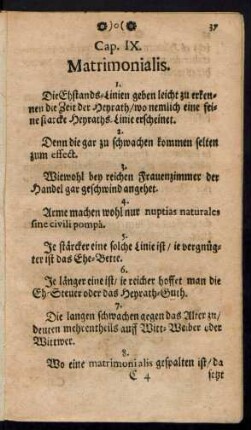 )o( 37
Cap. IX.
Matrimonialis.
1.
Die Ehstands-Linien geben leicht zu erken-
nen die Zeit der Heyrath/wo nemlich eine fei-
ne starcke Heyraths-Linie erscheinet.
2.
Denn die gar zu schwachen kommen selten
zum effect.
3.
Wiewohl bey reichen Frauenzimmer der
Handel gar geschwind angehet.
4.
Arme machen wohl nur nuptias naturales
sine civili pompâ.
5.
Je stärcker eine solche Linie ist/ ie vergnüg-
ter ist das Ehe-Bette.
6.
Je länger eine ist/ ie reicher hoffet man die
Eh-Steuer oder das Heyrath-Guth.
7.
Die langen schwachen gegen das Alter zu/
deuten mehrentheils auff Witt-Weiber oder
Wittwer.
8.
Wo eine matrimonialis gespalten ist/da
C 4 setzt